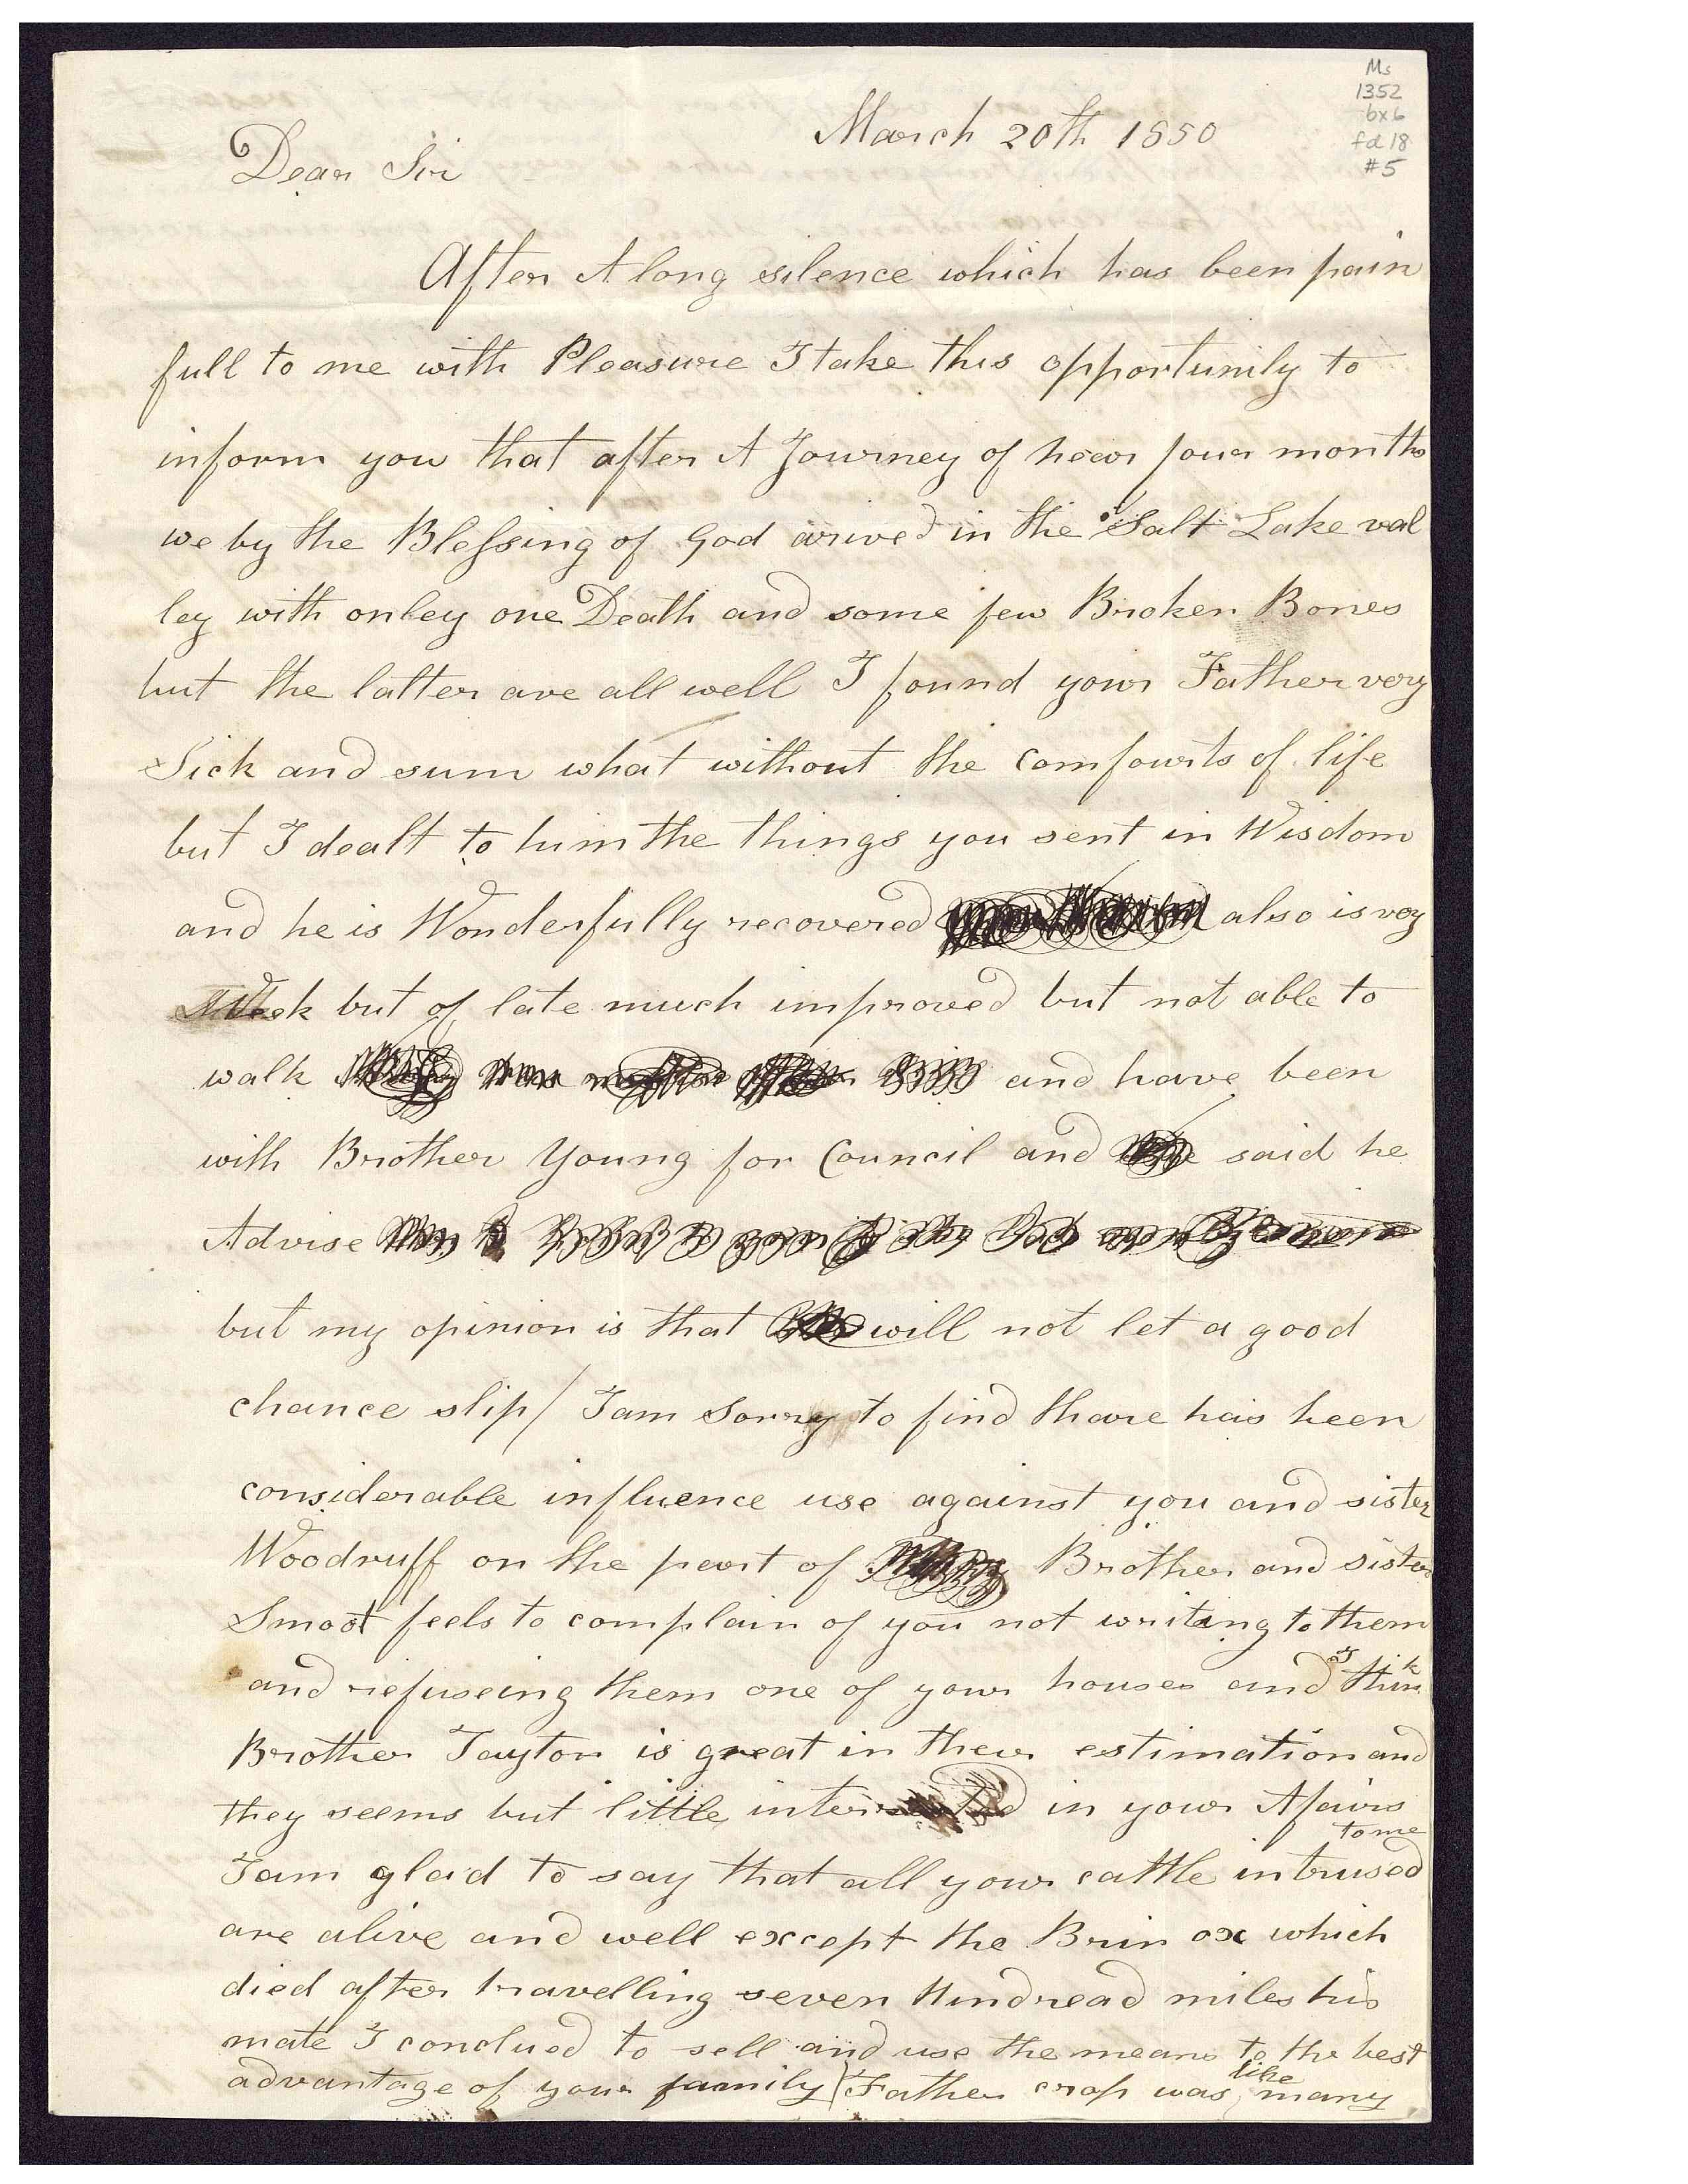 Ms
1352
bx 6
fd 18
#5
March 20th 1850
Dear Sir
After A long silence which has been pain
full to me with Pleasure I take this opportunity to
inform you that after A Journey of near four months
we by the Blessing of God arived in the Salt Lake val
ley with onley one Death and some few Broken Bones
but the latter are all well I found your Father very
Sick and sum what without the comfourts of life
but I dealt to him the things you sent in Wisdom
and he is Wonderfully recovered also is very
Week but of late much improved but not able to
walk and have been
with Brother Young for Council and said he
Advise
but my opinion is that will not let a good
chance slip/ I am Sorry to find thare has been
considerable influence use against you and sister
Woodruff on the part of Brother and sister
Smoot feels to complain of you not writing to them
and refuseing them one of your houses and I think
Brother Taylor is great in their estimation and
they seems but little in your Afairs
I am glad to say that all your cattle intrused to me
are alive and well except the Brin ox which
died after travelling seven Hundread miles his
mate I conclued to sell and use the means to the best
advantage of your family Father crop was like many